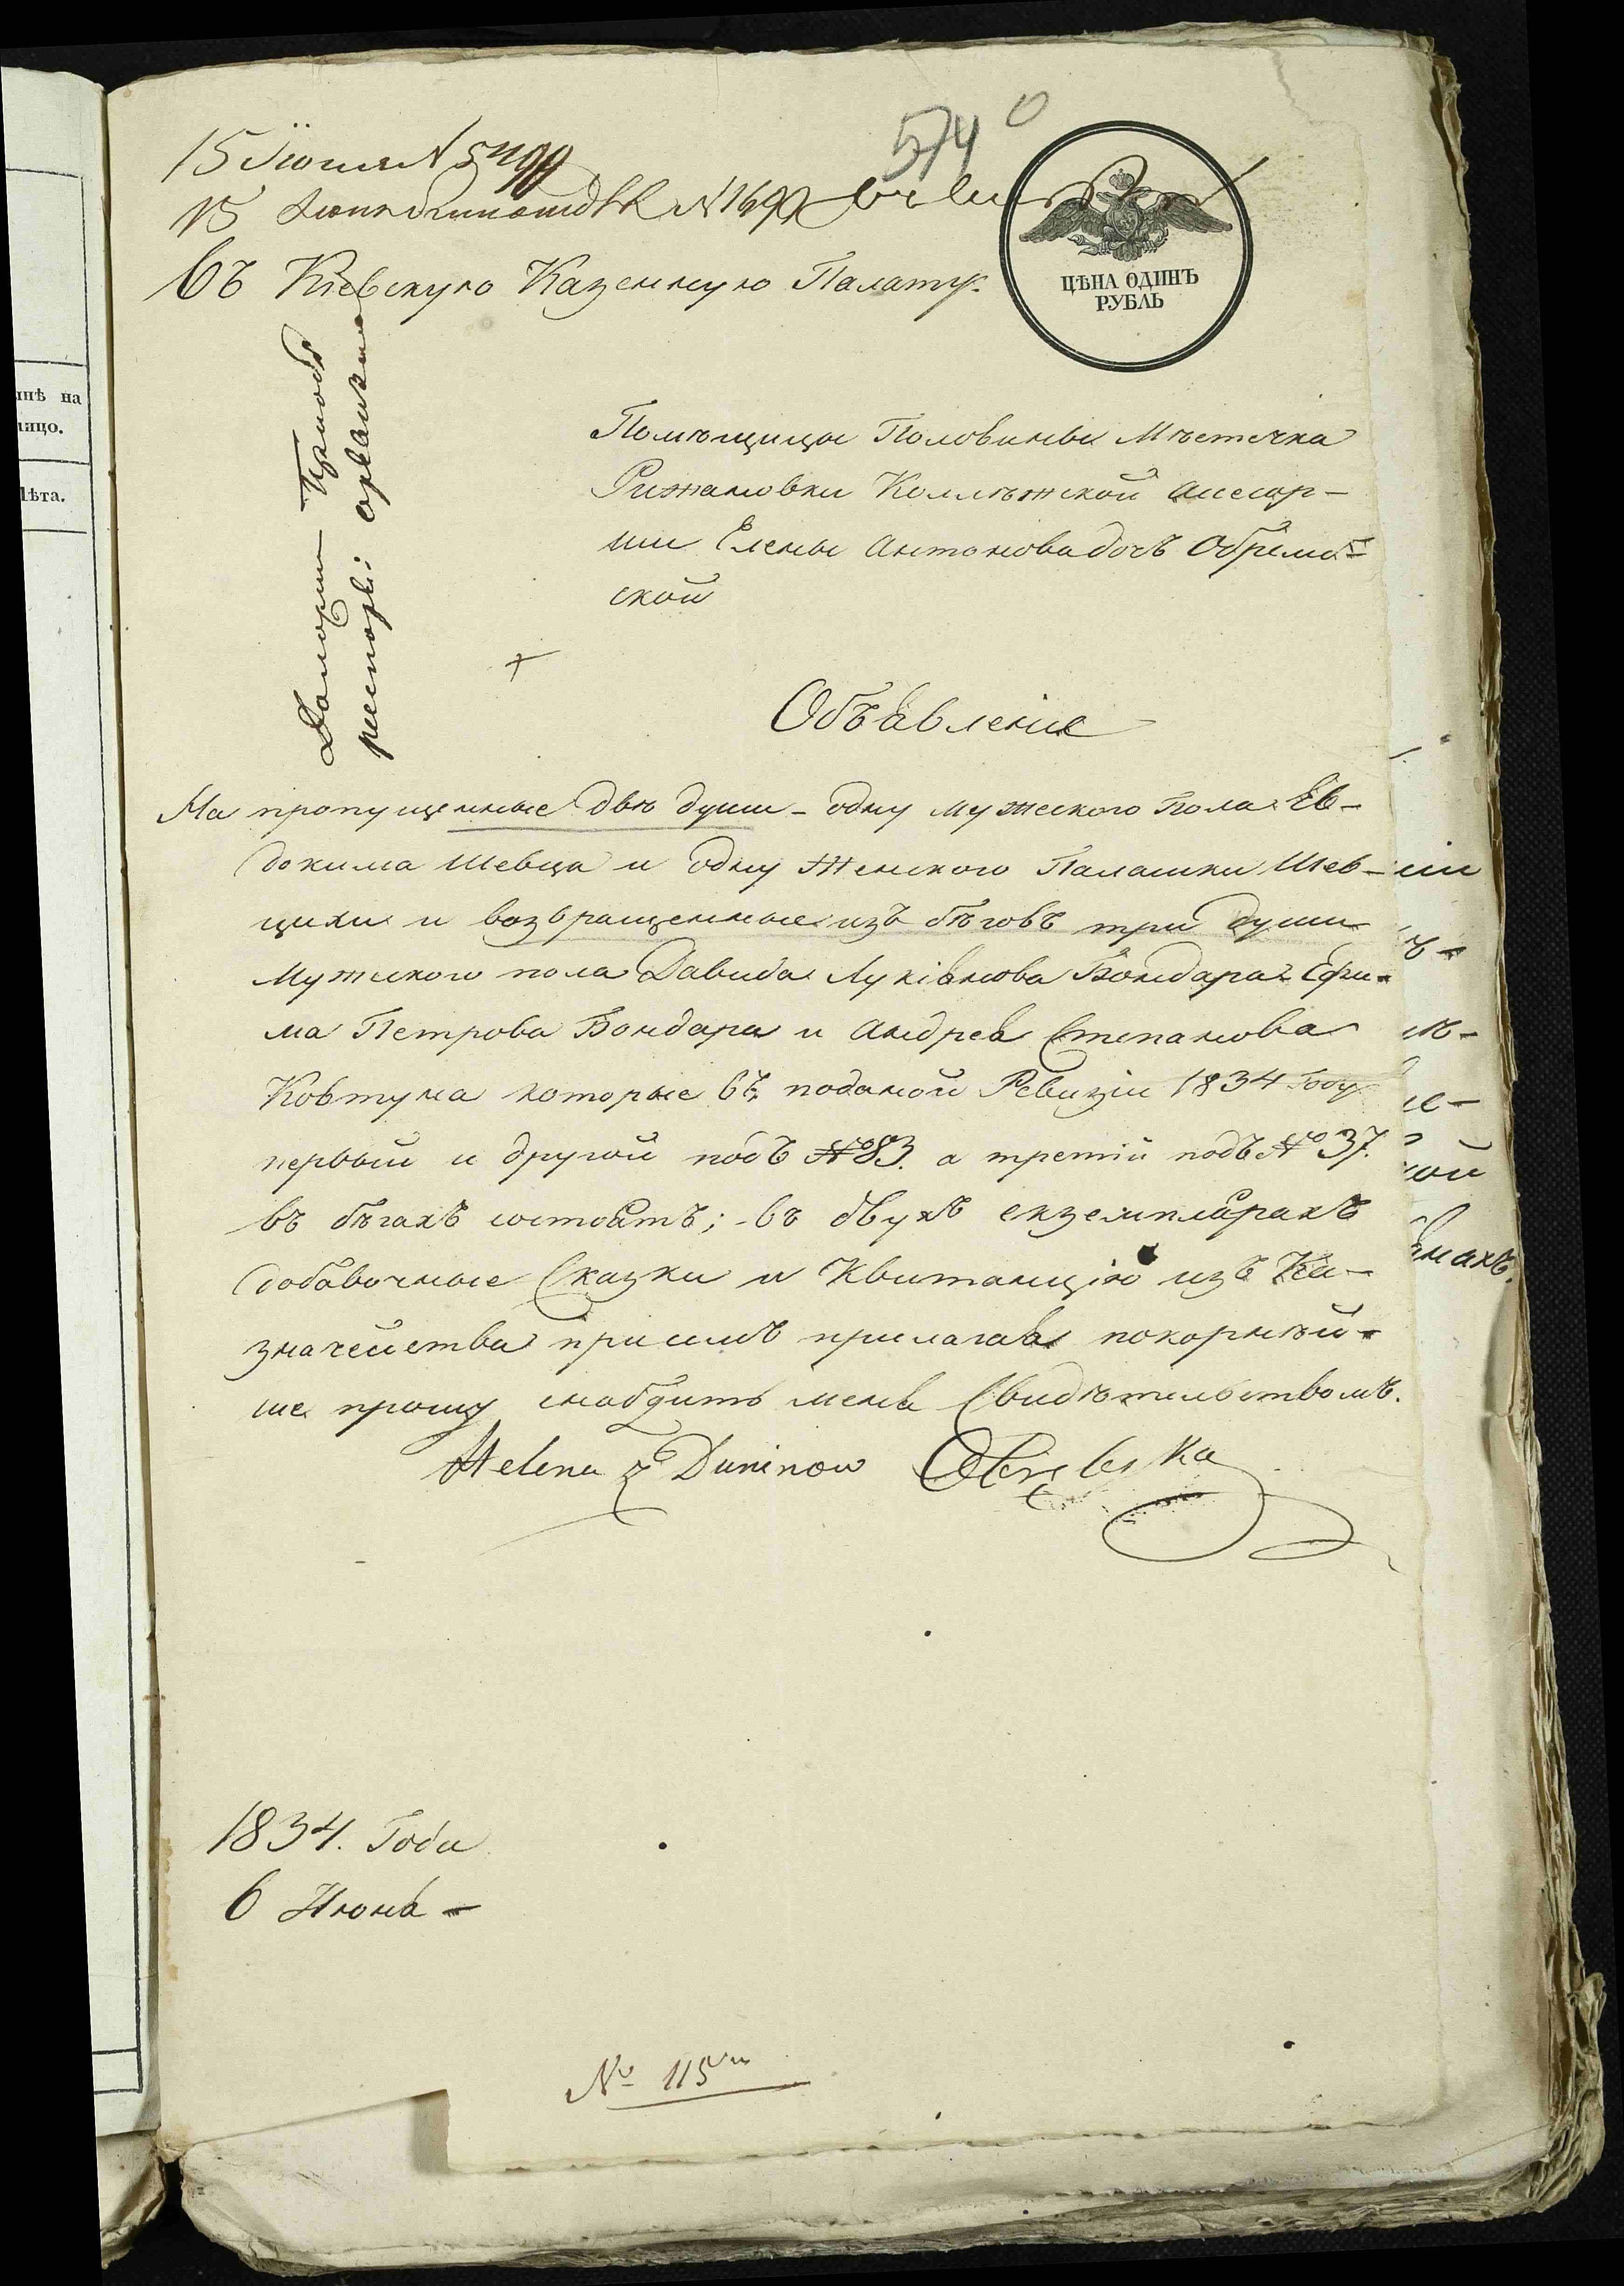 574
15 Іюня N
15 N 1692
Въ Кіевскую Казенную Палату.
ЦѢНА ОДИНЪ
РУБЛЬ
Помѣщицы Половины Мѣстечка
Рижановки Коллѣжской Ассесор-
ши Елены Антонова дочъ Обремб-
ской
Объявленіе
На пропущенные двѣ души - одну мужеского пола Ев-
докима Шевца и одну Женского Палашки Шев-
цихи и возвращенные изъ бѣговъ три души
Мужеского пола Давида Лукіянова Бондара Ефи-
ма Петрова Бондара и Андрея Степанова
Ковтуна которые въ поданой Ревизіи 1834 Году
первый и другой подъ №83. а третій подъ № 37.
въ бѣгахъ состоятъ; - въ двухъ екземплярахъ
добавочные Сказки и Квитанцію изъ Ка-
значейства при семъ прилагая покорнѣй-
ше прошу снабдить меня Свидѣтельствомъ.
Helena z Duninow Obrębska
1834. Года
6 Июня -
№ 115
инѣ на
лицо.
Лѣта.